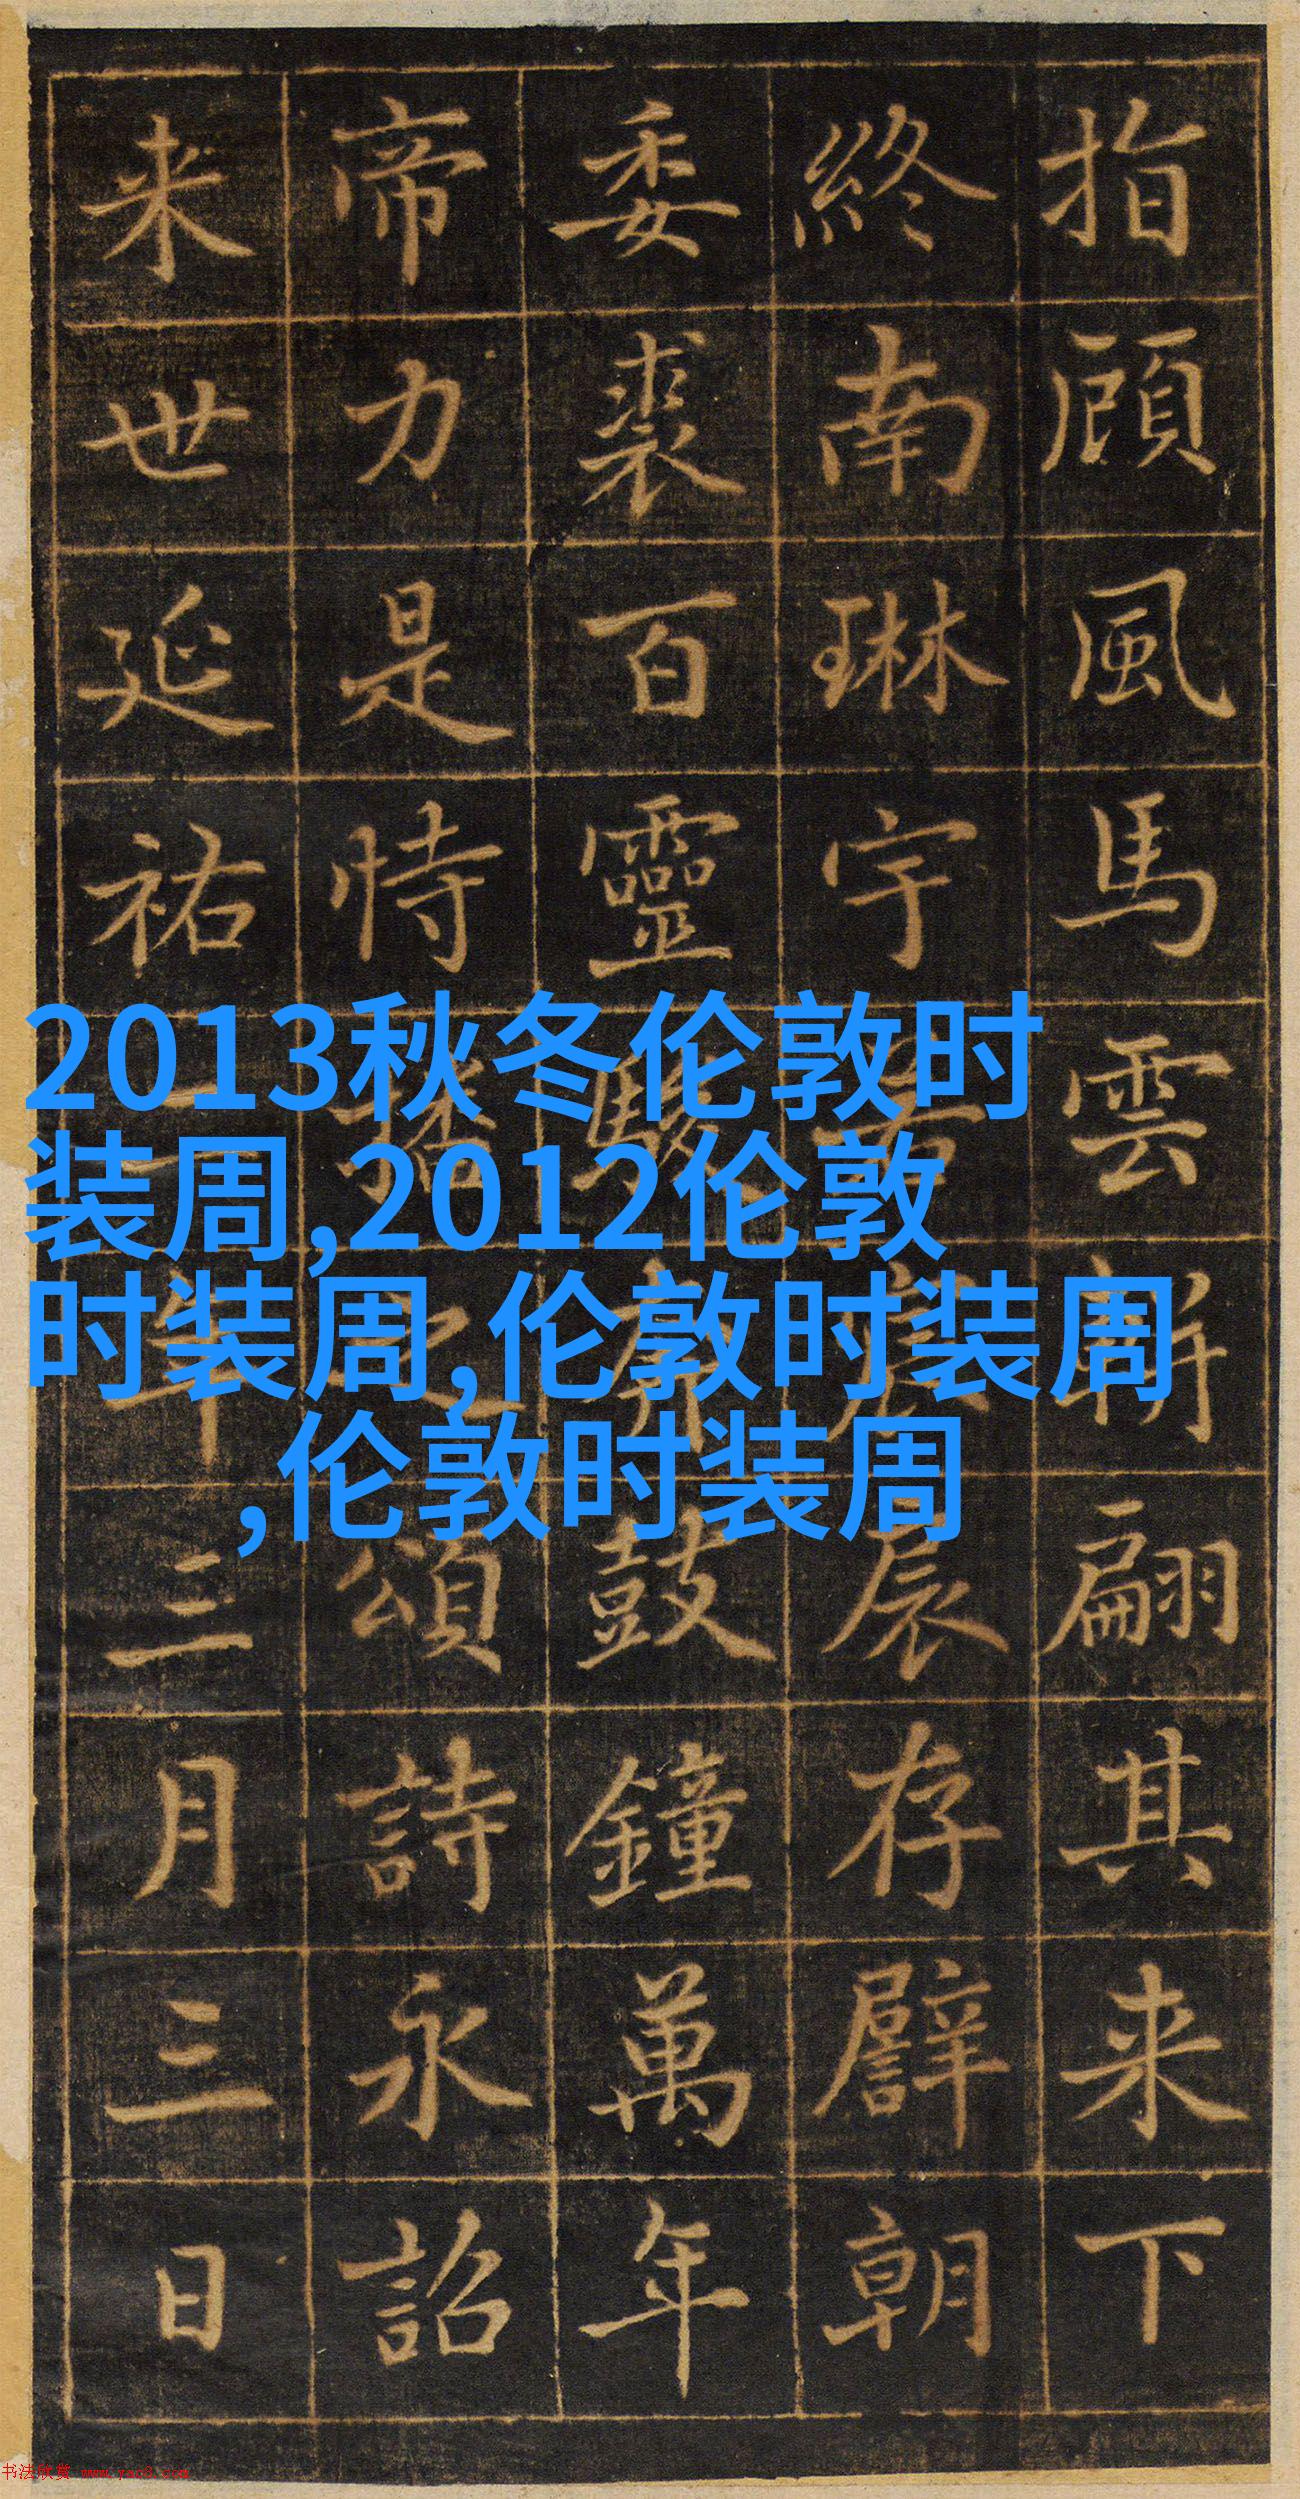 指顧風馬雲翩其来下
終南琳宇扆存譬朝
委裘百靈駿奔鼓鐘萬年
帝力是恃播之頌詩永詔
来世延祐二年三月三日
2013秋冬伦敦时
装周,2012伦敦
时装周,伦敦时装周
,伦敦时装周
书法欣赏 www.yac8.com